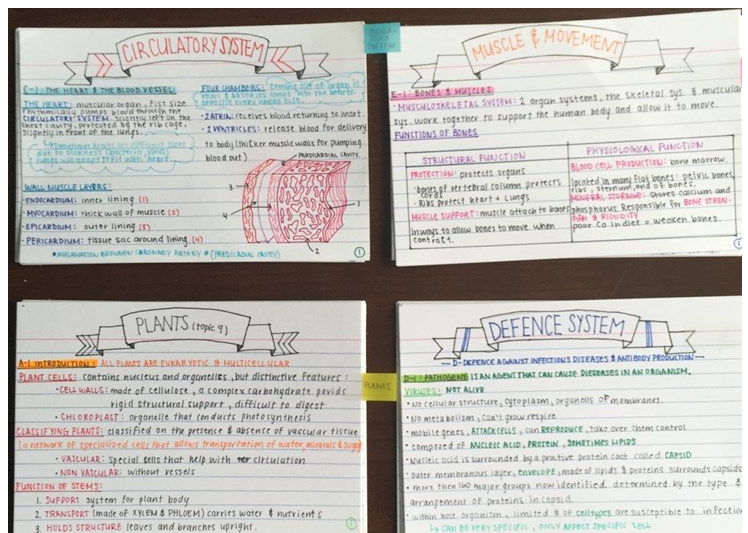 CIRCULATORY SYSTEM
C-1: THE HEART & THE BLOOD VESSEL
THE HEART: muscular organ, fist size
rhythmically pumps blood through the
CIRCULATORY SYSTEM, slightly left on the
chest cavity, protected by the rib cage,
slightly in front of the lungs.
↳ sometimes hearts are different sizes
due to sickness
lungs will adapt to fit with heart.
WALL MUSCLE LAYERS:
-ENDICARDIUM: inner lining (1)
-MYOCARDIUM: thick wall of muscle (2)
-EPICARDIUM: outer lining (3)
-PERICARDIUM: tissue sac around lining (4)
FOUR CHAMBERS:
-2 ATRIA: receives blood returning to heart
-2 VENTRICLES: release blood for delivery
to body (thicker muscle walls for pumping
blood out)
PARDICARDIAL CAVITY.
3
4
1
2
1
MUSCLE & MOVEMENT
E-1: BONES & MUSCLES
-MUSCULOSKELETAL SYSTEM: 2 organ systems, the skeletal sys. & muscular
sys. work together to support the human body and allow it to move.
FUNCTIONS OF BONES
STRUCTURAL FUNCTION
PROTECTION: protects organs
· bones of vertebral column protects
cords
· Ribs protect heart + lungs
MUSCLE SUPPORT: muscle attach to bones
in ways to allow bones to move when
contract.
PHYSIOLOGICAL FUNCTION
BLOOD CELL PRODUCTION: bone marrow,
located in many flat bones: pelvic bones,
ribs, sternum, end of bones.
MINERAL STORAGE: stores calcium and
phosphorus Responsible for BONE STREN-
GTH & RIGIDITY
poor Ca in diet = weaken bones.
1
PLANTS (topic 9)
A-1 INTRODUCTION: ALL PLANTS ARE EUKARYOTIC & MULTICELLULAR
PLANT CELLS: contains nucleus and organelles, but distinctive features:
· CELL WALLS: made of cellulose, a complex carbohydrate
rigid structural support, difficult to digest
· CHLOROPLAST: organelle that conducts photosynthesis
CLASSIFYING PLANTS: classified on the presence & absence of vascular tissue
(a network of specialized cells that allows transportation of water, minerals &
· VASCULAR: special cells that help with circulation
· NON VASCULAR: without vessels
FUNCTION OF STEMS:
1. SUPPORT system for plant body
2. TRANSPORT (made of XYLEM & PHLOEM) carries water & nutrients
3. HOLDS STRUCTURE leaves and branches upright.
1
PLANTS
DEFENCE SYSTEM
D- DEFENCE AGAINST INFECTIONS DISEASES & ANTIBODY PRODUCTION
D-1: PATHOGENS IS AN AGENT THAT CAN CAUSE DISEASES IN AN ORGANISM.
VIRUSES: NOT ALIVE
· No cellular structure, cytoplasm, organells or membranes.
· No metabolism, can't grow respire
· mobile genes, ATTACK CELLS, can REPRODUCE, take over them control
· composed of NUCLEIC ACID, PROTEIN, SOMETIMES LIPIDS
· Nucleic acid is surrounded by a proctive protein coat called CAPSID
· outer membranous layer, ENVELOPE, made of lipids & proteins surrounds capsids
· more then 160 major groups now identified determined by the type &
arrangement of proteins in capsid.
· within host organism, limited # of celltypes are susceptible to infection
↳ CAN BE VERY SPECIFIC, ONLY AFFECT SPECIFIC CELL